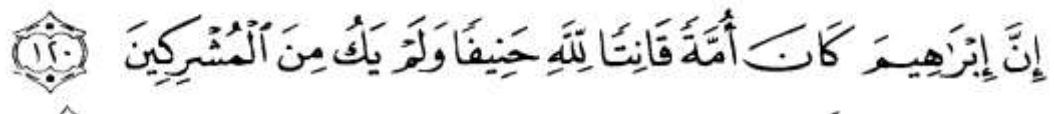 إِنَّ إِبْرَٰهِيمَ كَانَ أُمَّةً قَانِتًا لِّلَّهِ حَنِيفًا وَلَمْ يَكُ مِنَ ٱلْمُشْرِكِينَ ١٢٠